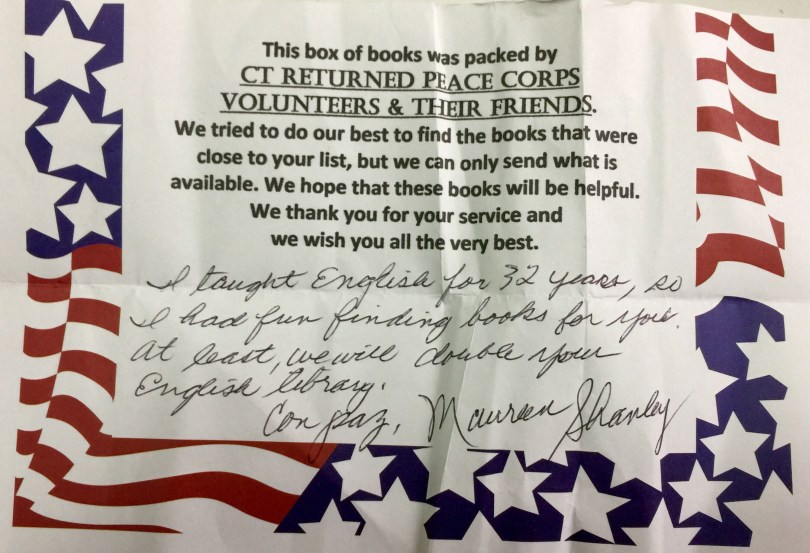 This box of books was packed by
CT RETURNED PEACE CORPS
VOLUNTEERS & THEIR FRIENDS.
We tried to do our best to find the books that were
close to your list, but we can only send what is
available. We hope that these books will be helpful.
We thank you for your service and
we wish you all the very best.
I taught English for 32 years, so
I had fun finding books for you.
At least, we will double your
English library.
Con paz, Maureen Shanley